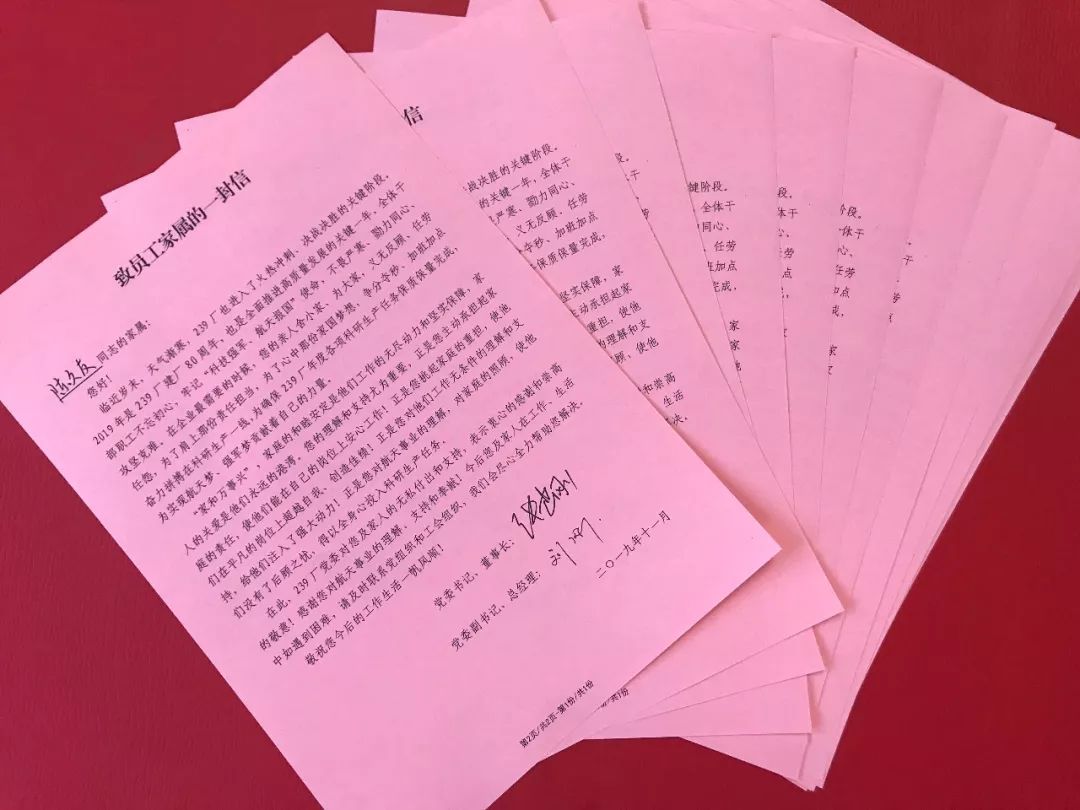 致员工家属的一封信
同志的家属:
您好!
临近岁末,天气渐寒,239厂也进入了火热冲刺、决战决胜的关键阶段。
2019年是239厂建厂80周年,也是全面推进高质量发展的关键一年,全体干
部职工不忘初心,牢记“科技强军、航天报国”使命,不畏严寒、勠力同心、
攻坚克难,在企业最需要的时候,您的亲人舍小家、为大家,义无反顾、任劳
任怨,为了肩上那份责任担当,为了心中那份家国梦想,争分夺秒、加班加点
奋力拼搏在科研生产一线,为确保239厂年度各项科研生产任务保质保量完成,
为实现航天梦、强军梦贡献着自己的力量。
“家和万事兴”,家庭的和睦安定是他们工作的无尽动力和坚实保障,家
人的关爱是他们永远的港湾,您的理解和支持尤为重要,正是您主动承担起家
庭的责任,使他们能在自己的岗位上安心工作!正是您挑起家庭的重担,使他
们在平凡的岗位上超越自我,创造佳绩!正是您对他们工作无条件的理解和支
持,给他们注入了强大动力!正是您对航天事业的理解,对家庭的照顾,使他
们没有了后顾之忧,得以全身心投入科研生产任务。
在此,239厂党委对您及家人的无私付出和支持,表示衷心的感谢和崇高
的敬意!感谢您对航天事业的理解、支持和奉献!今后您及家人在工作、生活
中如遇到困难,请及时联系党组织和工会组织,我们会尽心全力帮助您解决。
敬祝您今后的工作生活一帆风顺!
党委书记、董事长:
党委副书记、总经理:
二〇一九年十一月
第2页/共2页-第1份/共1份
信
战决胜的关键阶段。
的关键一年,全体干
严寒、勠力同心、
义无反顾、任劳
夺秒、加班加点
保质保量完成,
坚实保障,家
主动承担起家
重担,使他
的理解和支
照顾,使他
和崇高
生活
决。
键阶段。
全体干
同心、
任劳
加班加点
完成,